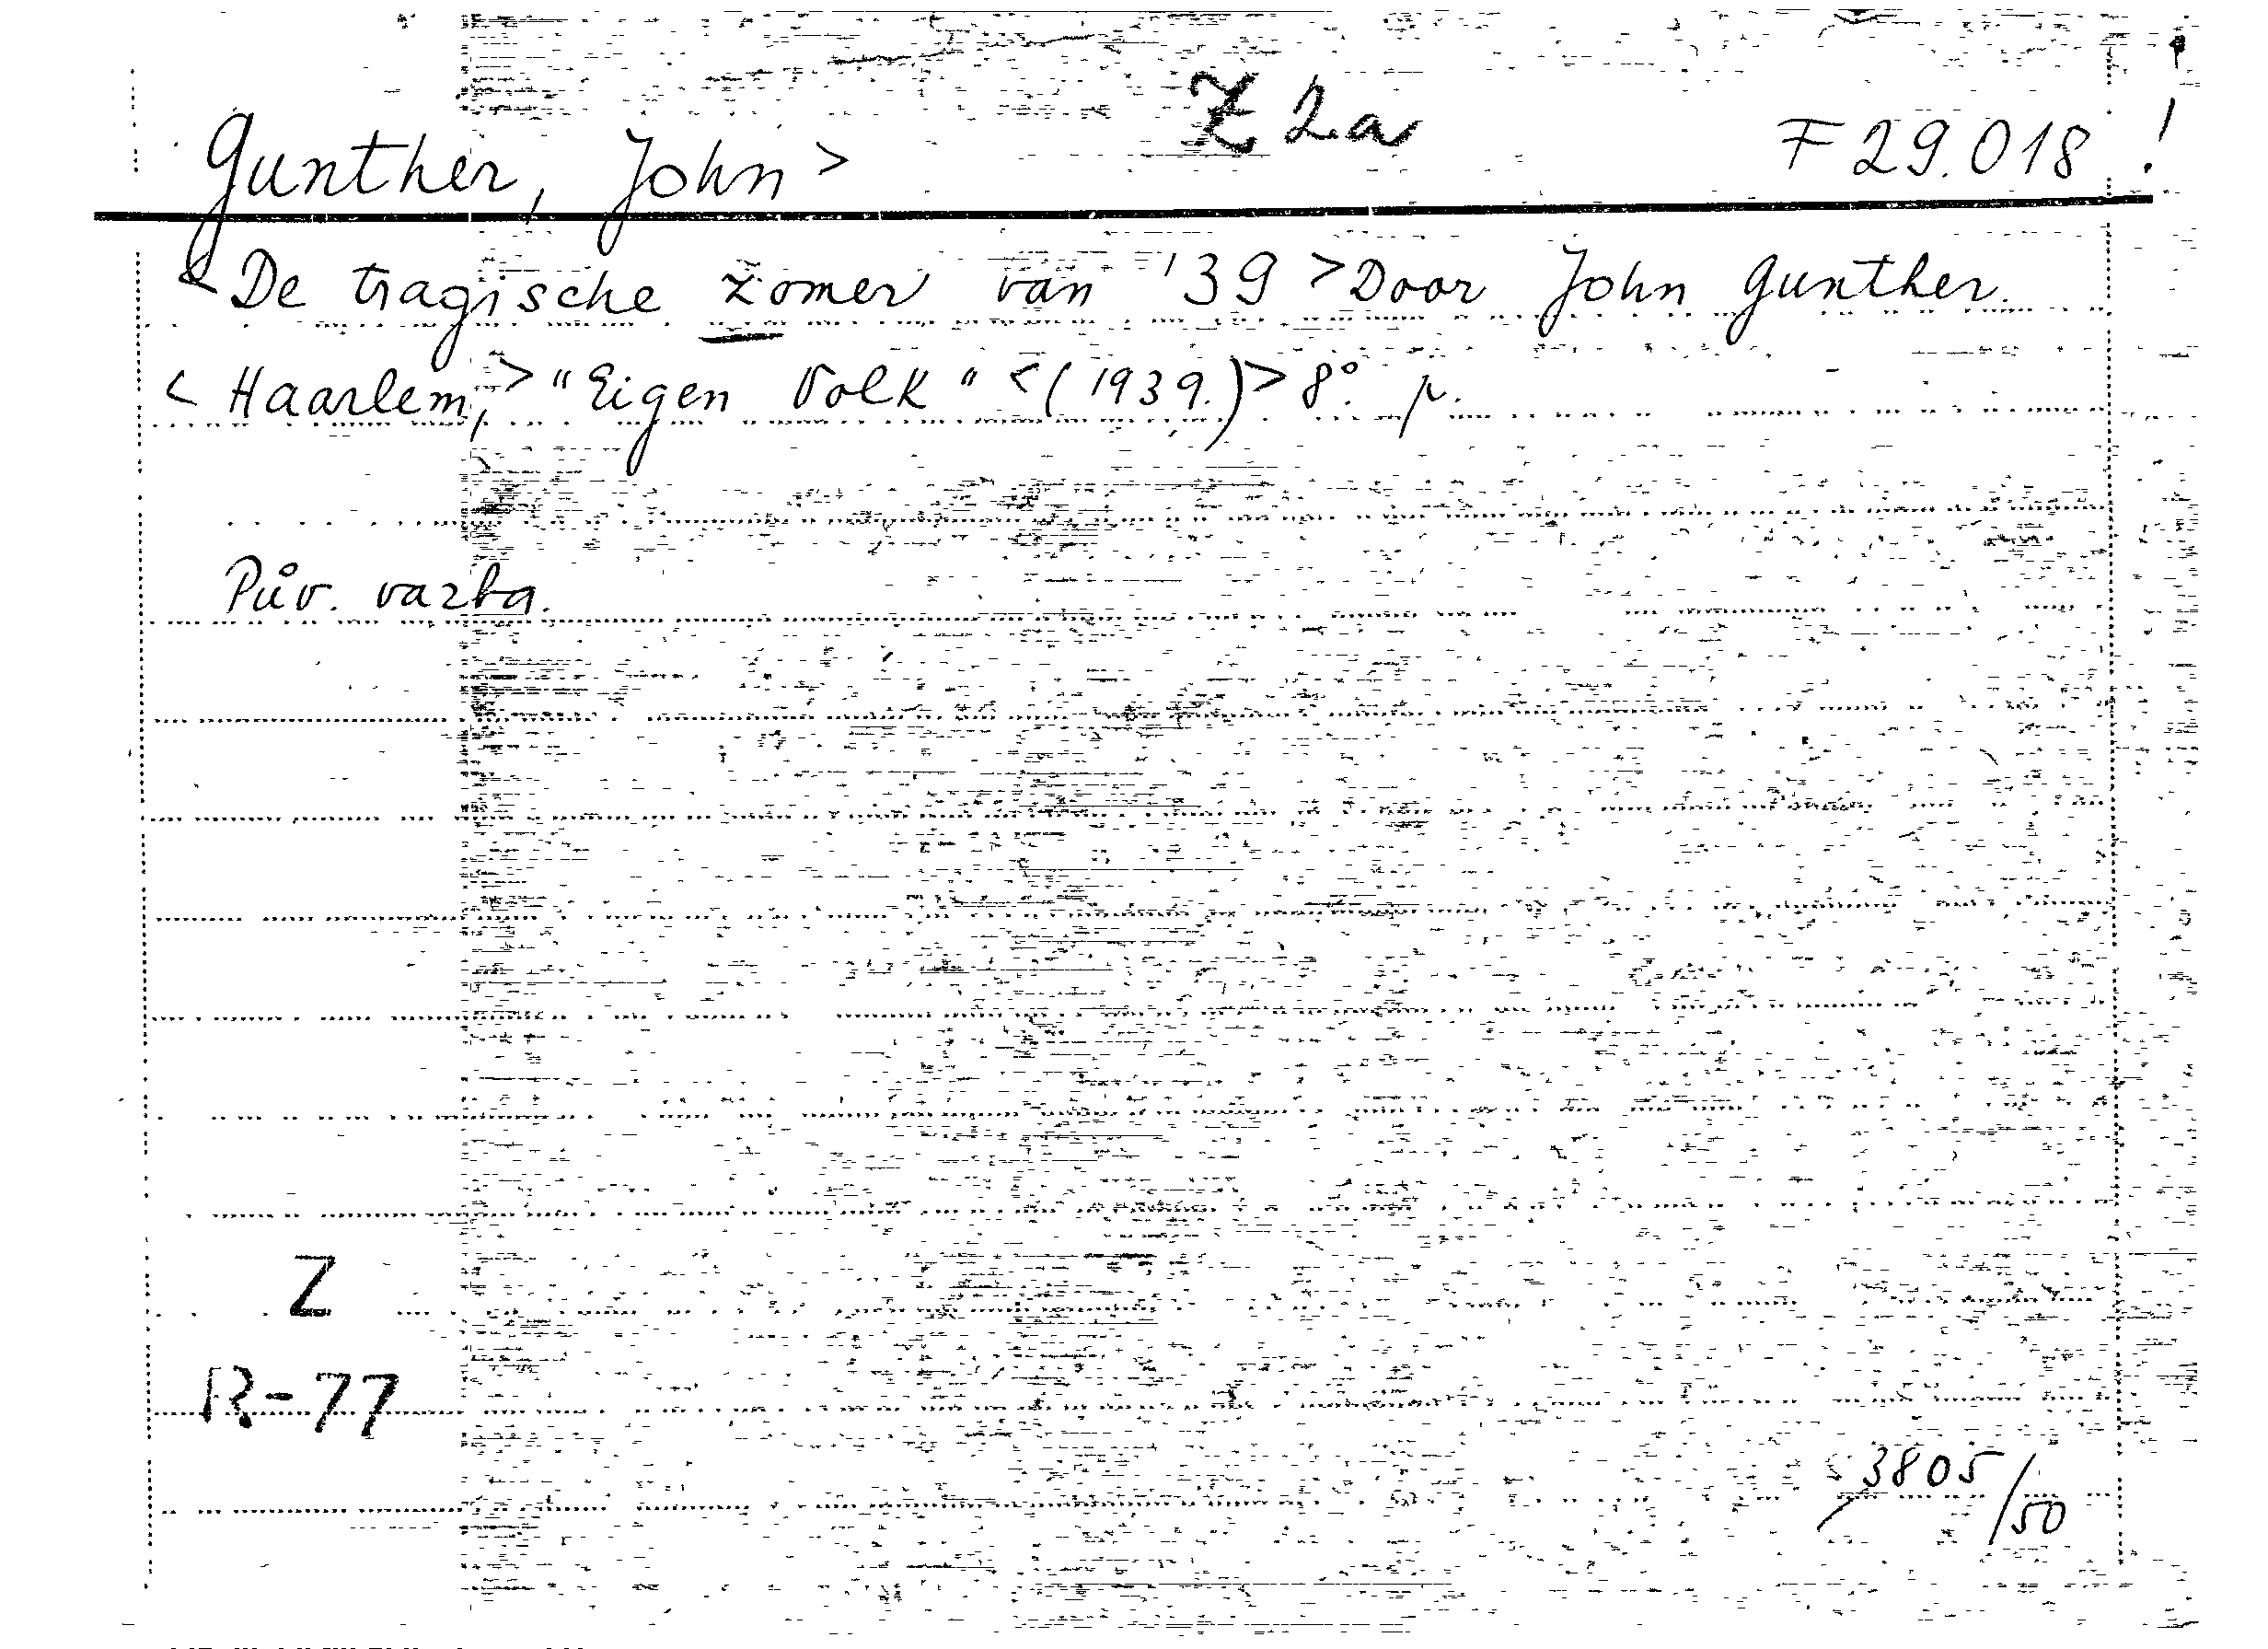 Z 2a
Gunther, John > F 29.018 !
< De tragische zomer van '39 > Door John Gunther.
< Haarlem, > "Eigen Volk" < (1939.) > 8° p.
Pův. vazba.
Z
R-77
3805/50